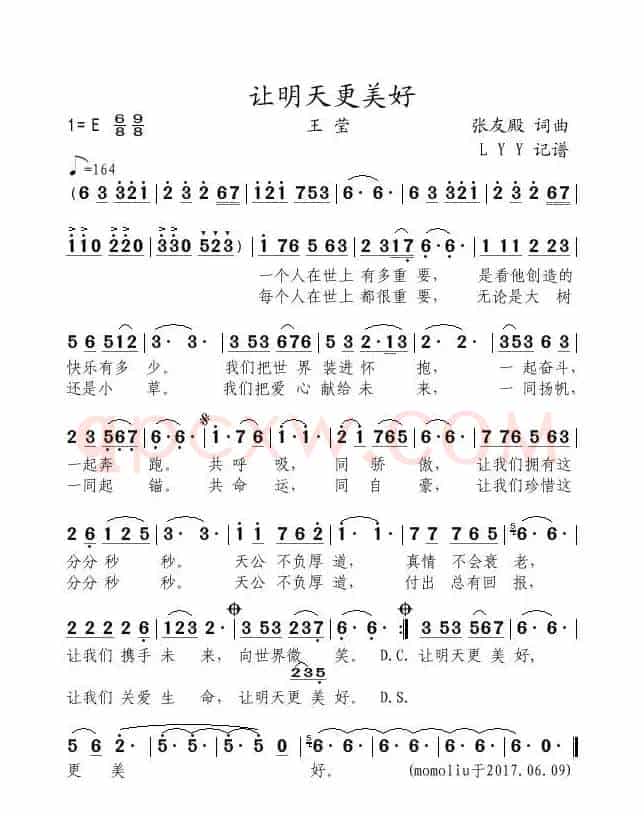 让明天更美好
1= E 6/8 9/8 王 莹 张友殿 词曲
L Y Y 记谱
♪=164
( 6 3 3 2 1 | 2 3 2 6 7 | 1 2 1 7 5 3 | 6· 6· | 6 3 3 2 1 | 2 3 2 6 7 |
1 1 0 2 2 0 | 3 3 0 5 2 3 ) | 1 7 6 5 6 3 | 2 3 1 7 6· 6· | 1 1 1 2 2 3 |
一个人在世上 有多重 要, 是看他创造的
每个人在世上 都很重 要, 无论是大 树
5 6 5 1 2 | 3· 3· | 3 5 3 6 7 6 | 5 3 5 1 3 | 2· 2· | 3 5 3 6 3 |
快乐有多 少。 我们把世 界 装进怀 抱, 一起奋斗,
还是小 草。 我们把爱 心 献给未 来, 一同扬帆,
2 3 5 6 7 | 6· 6· | 1· 7 6 | 1· 1· | 2 1 7 6 5 | 6· 6· | 7 7 6 5 6 3 |
qpcxw.COM
一起奔 跑。 共呼 吸, 同 骄 傲, 让我们拥有这
一同起 锚。 共命 运, 同 自 豪, 让我们珍惜这
2 6 1 2 5 | 3· 3· | 1 1 7 6 2 | 1· 1· | 7 7 7 6 5 | 6· 6· |
分分 秒 秒。 天公 不负厚 道, 真情 不会衰 老,
分分 秒 秒。 天公 不负厚 道, 付出 总有回 报,
2 2 2 2 6 | 1 2 3 2· | 3 5 3 2 3 7 | 6· 6· :| 3 5 3 5 6 7 | 6· 6· |
让我们 携手 未 来, 向世界微 笑。 D.C. 让明天更 美 好,
2 3 5
让我们 关爱 生 命, 让明天更 美 好。 D.S.
5 6 2· | 5· 5· | 5· 5· | 5 0 | 6· 6· | 6· 6· | 6· 6· | 6 0 ‖
更 美 好。 (momoliu于2017.06.09)